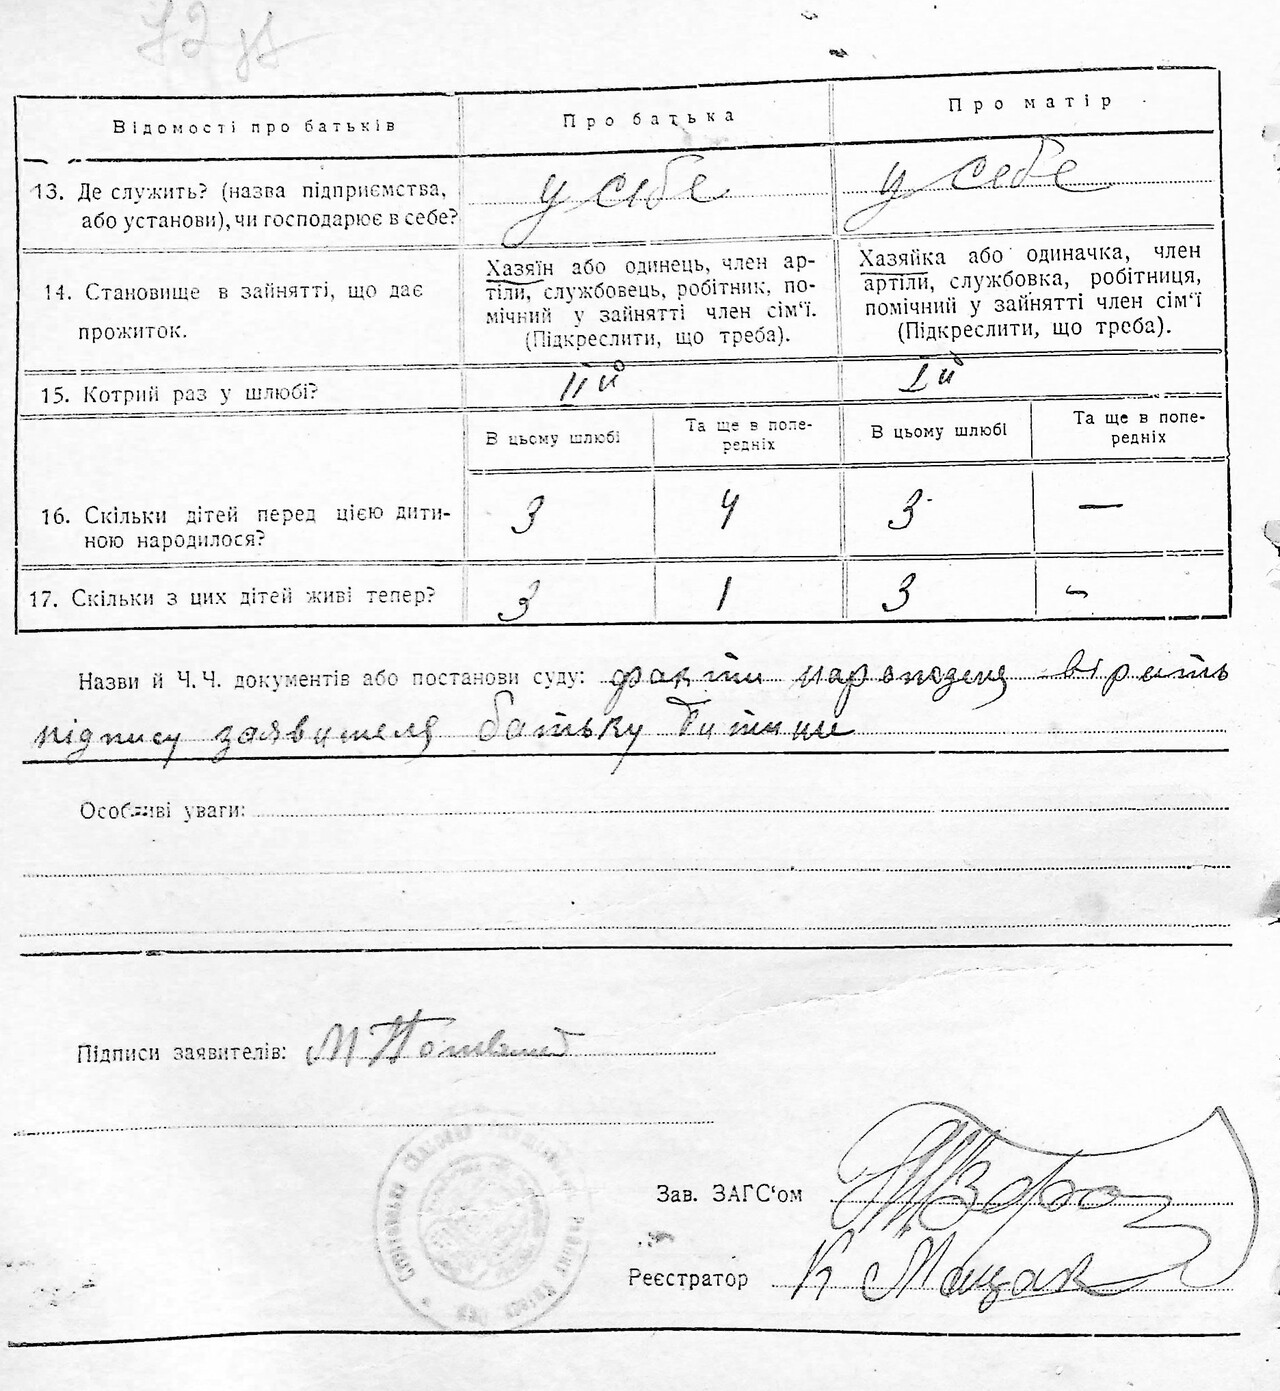 72
Відомості про батьків
Про батька
Про матір
13. Де служить? (назва підприємства,
або установи), чи господарює в себе?
у себе
у себе
14. Становище в зайнятті, що дає
прожиток.
Хазяїн або одинець, член ар-
тіли, службовець, робітник, по-
мічний у зайнятті член сім'ї.
(Підкреслити, що треба).
Хазяйка або одиначка, член
артіли, службовка, робітниця,
помічний у зайнятті член сім'ї
(Підкреслити, що треба).
15. Котрий раз у шлюбі?
ІІй
Ій
В цьому шлюбі
Та ще в попе-
редніх
В цьому шлюбі
Та ще в попе-
редніх
16. Скільки дітей перед цією дити-
ною народилося?
3
4
3
—
17. Скільки з цих дітей живі тепер?
3
1
3
-
Назви й Ч.Ч. документів або постанови суду:
підпису заявителя батьку
Особливі уваги:
Підписи заявителів: М
Зав. ЗАГС'ом
Реєстратор К